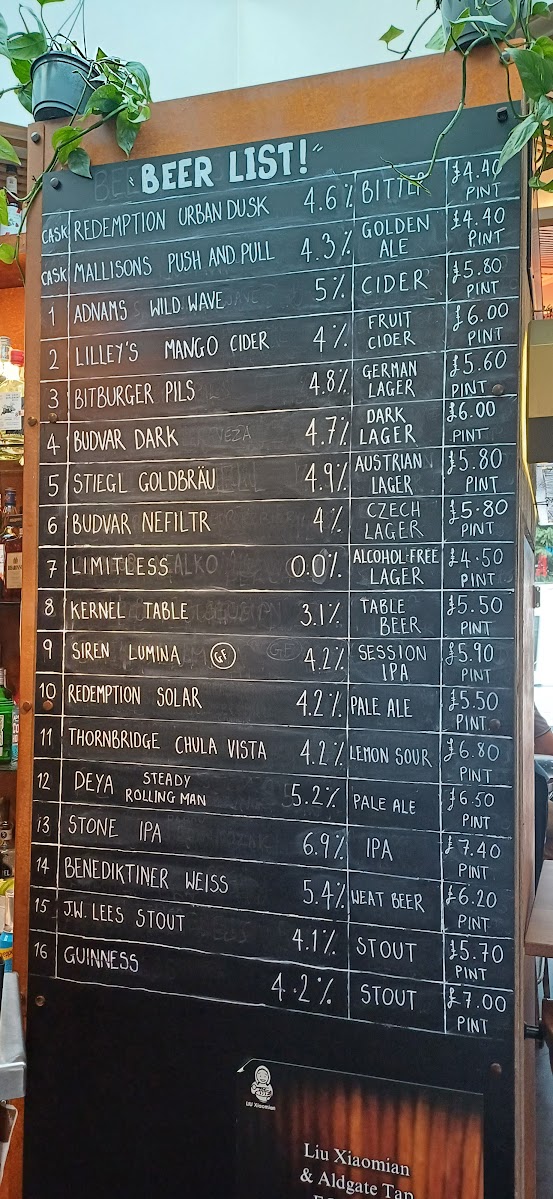 "BEER LIST!"
CASK REDEMPTION URBAN DUSK 4.6% BITTER £4.40 PINT
CASK MALLISONS PUSH AND PULL 4.3% GOLDEN ALE £4.40 PINT
1 ADNAMS WILD WAVE 5% CIDER £5.80 PINT
2 LILLEY'S MANGO CIDER 4% FRUIT CIDER £6.00 PINT
3 BITBURGER PILS 4.8% GERMAN LAGER £5.60 PINT
4 BUDVAR DARK 4.7% DARK LAGER £6.00 PINT
5 STIEGL GOLDBRÄU 4.9% AUSTRIAN LAGER £5.80 PINT
6 BUDVAR NEFILTR 4% CZECH LAGER £5.80 PINT
7 LIMITLESS 0.0% ALCOHOL-FREE LAGER £4.50 PINT
8 KERNEL TABLE 3.1% TABLE BEER £5.50 PINT
9 SIREN LUMINA GF 4.2% SESSION IPA £5.90 PINT
10 REDEMPTION SOLAR 4.2% PALE ALE £5.50 PINT
11 THORNBRIDGE CHULA VISTA 4.2% LEMON SOUR £6.80 PINT
12 DEYA STEADY ROLLING MAN 5.2% PALE ALE £6.50 PINT
13 STONE IPA 6.9% IPA £7.40 PINT
14 BENEDIKTINER WEISS 5.4% WEAT BEER £6.20 PINT
15 J.W. LEES STOUT 4.1% STOUT £5.70 PINT
16 GUINNESS 4.2% STOUT £7.00 PINT
LIU Xiaomian
Liu Xiaomian
& Aldgate Tap